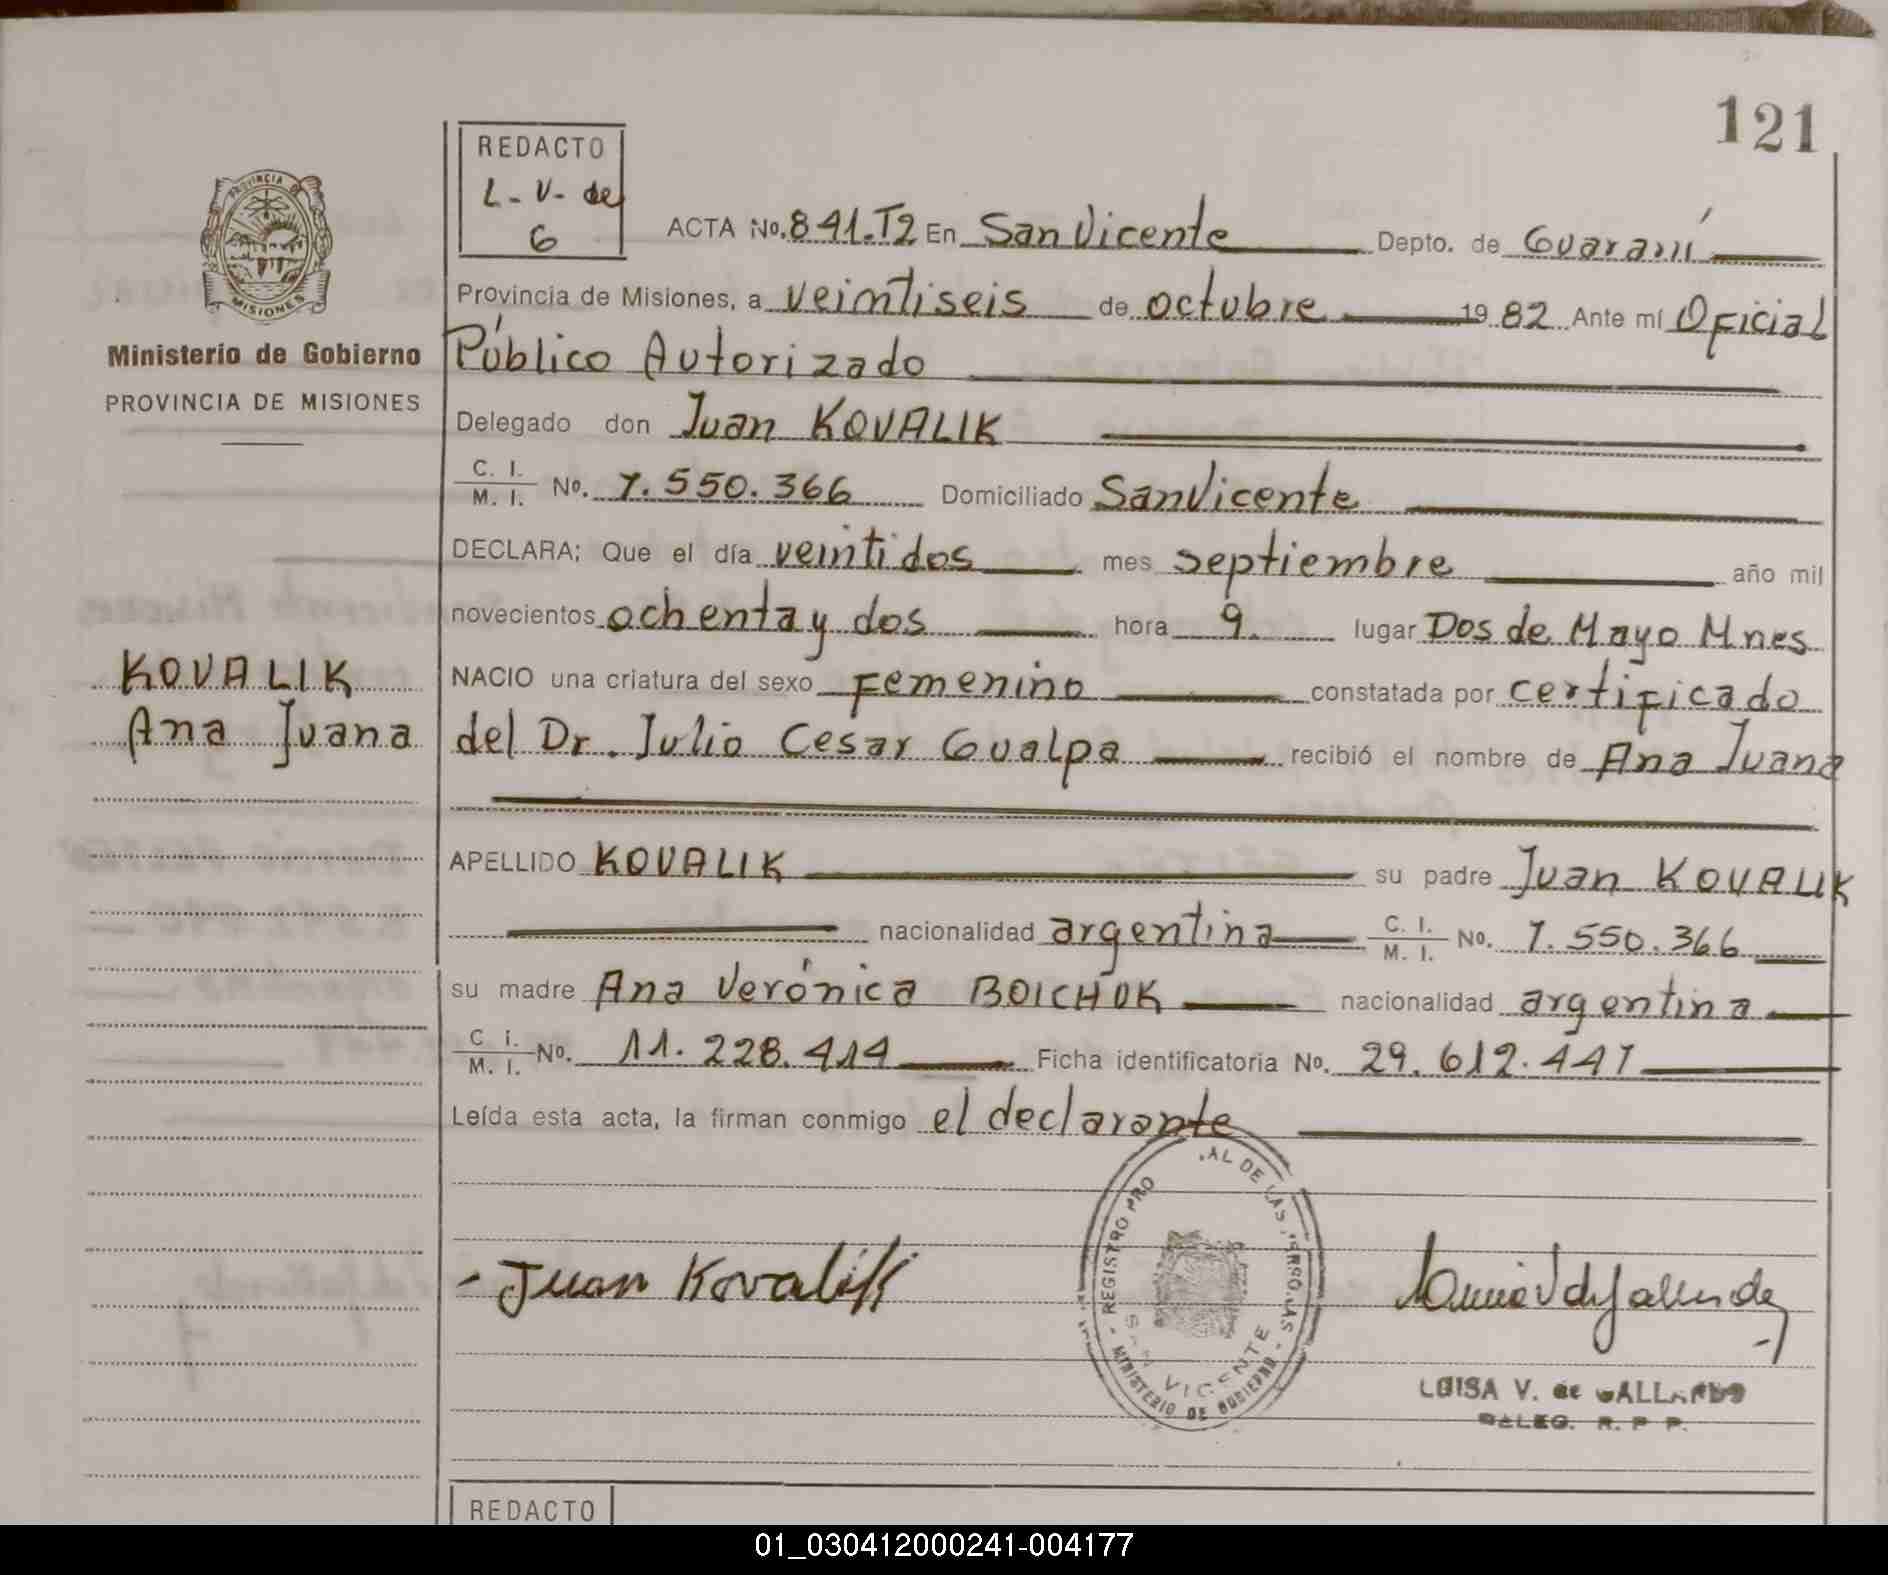 121
REDACTO
L-V-de
G
PROVINCIA DE
MISIONES
Ministerio de Gobierno
PROVINCIA DE MISIONES
ACTA No. 841.T2 En San Vicente Depto. de Guaraní
Provincia de Misiones, a veintiseis de octubre 19 82 Ante mí Oficial
Público Autorizado
Delegado don Juan KOVALIK
C. I.
M. I. No. 7.550.366 Domiciliado San Vicente
DECLARA; Que el día veintidos mes septiembre año mil
novecientos ochenta y dos hora 9. lugar Dos de Mayo Mnes
KOVALIK
Ana Juana
NACIO una criatura del sexo Femenino constatada por certificado
del Dr. Julio Cesar Gualpa recibió el nombre de Ana Juana
APELLIDO KOVALIK su padre Juan KOVALIK
nacionalidad argentina C. I. M. I. No. 7.550.366
su madre Ana Verónica BOICHUK nacionalidad argentina
C. I.
M. I. No. 11.228.414 Ficha identificatoria No. 29.612.447
Leída esta acta, la firman conmigo el declarante
- Juan Kovalik
REGISTRO PRO AL DE LAS
MINISTERIO DE GOBIERNO
SAN VICENTE
LUISA V. de GALLARDO
DELEG. R. P P.
REDACTO
01_030412000241-004177